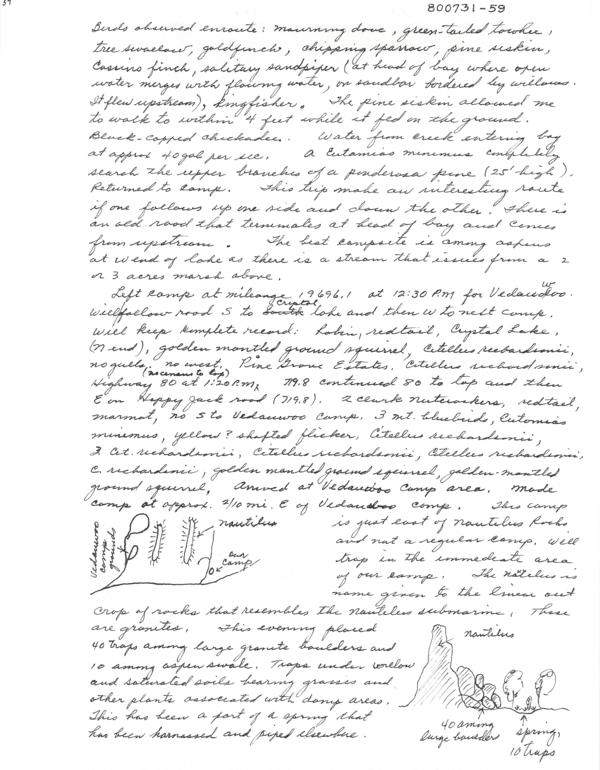 37
800731-59
Birds observed enroute: mourning dove, green-tailed towhee,
tree swallow, goldfinch, chipping sparrow, pine siskin,
Cassins finch, solitary sandpiper (at head of bay where open
water merges with flowing water, on sandbar bordered by willows.
It flew upstream), kingfisher. The pine siskin allowed me
to walk to within 4 feet while it fed on the ground.
Black-capped chickadee. Water from creek entering bay
at approx 40 gal per sec. A Eutamias minimus completely
search the upper branches of a ponderosa pine (25' high).
Returned to camp. This trip make an interesting route
if one follows up one side and down the other. There is
an old road that terminates at head of bay and comes
from upstream. The best campsite is among aspens
at W end of lake as there is a stream that issues from a 2
or 3 acres marsh above.
Left camp at mileage 19696.1 at 12:30 PM for Vedauwoo.
Will follow road S to Crystal lake and then W to next camp.
Will keep complete record: Robin, redtail, Crystal Lake,
(N end), golden mantled ground squirrel, Citellus richardsonii,
no gulls, no west. Pine Grove Estates. Citellus richardsonii,
Highway 80 at 1:20 P.M. (no census to top) 719.8 continued 80 to top and then
E on Happy Jack road (719.8). 2 clark nutcrackers, redtail,
marmot, no S to Vedauwoo Camp. 3 mt. bluebirds, Eutamias
minimus, yellow? shafted flicker, Citellus richardsonii,
3 Cit. richardsonii, Citellus richardsonii, Citellus richardsonii,
C. richardsonii, golden mantled ground squirrel, golden-mantled
ground squirrel, Arrived at Vedauwoo Camp area. Made
camp at approx. 2/10 mi. E of Vedauwoo camp. This camp
is just east of Nautilus Rocks
and not a regular camp. Will
trap in the immediate area
of our camp. The nautilus is
name given to the linear out
Vedauwoo
camp
grounds
nautilus
our
camp
crop of rocks that resembles the nautilus submarine. These
are granites. This evening placed
40 traps among large granite boulders and
10 among aspen swale. Traps under willow
and saturated soils bearing grasses and
other plants associated with damp areas.
This has been a part of a spring that
has been harnassed and piped elsewhere.
nautilus
40 among
large boulders
spring,
10 traps